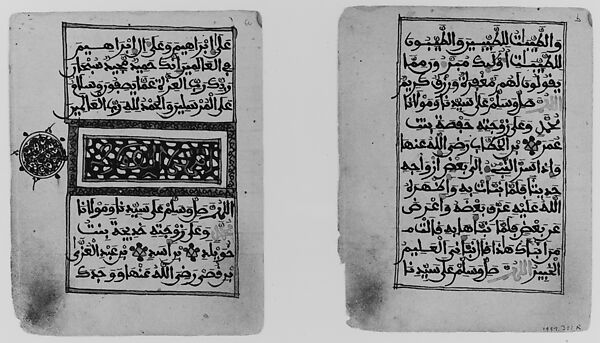 a
على إبراهيم وعلى ءال إبراهيم
في العالمين إنك حميد مجيد سبحان
ربك رب العزة عما يصفون وسلام
على المرسلين والحمد لله رب العالمين
اللهم صل وسلم على سيدنا ومولانا
محمد وعلى زوجته خديجة بنت
خويلد بن أسد بن عبد العزى
بن قصي رضي الله عنها ووجدك
b
والطيبات للطيبين والطيبون
للطيبات أولئك مبرءون مما
يقولون لهم مغفرة ورزق كريم
اللهم صل وسلم على سيدنا ومولانا
محمد وعلى زوجته حفصة بنت
عمر بن الخطاب رضي الله عنها
وإذ أسر النبي إلى بعض أزواجه
حديثا فلما نبأت به وأظهره
الله عليه عرف بعضه وأعرض
عن بعض فلما نبأها به قالت
من أنبأك هذا قال نبأني العليم
الخبير اللهم صل وسلم على سيدنا